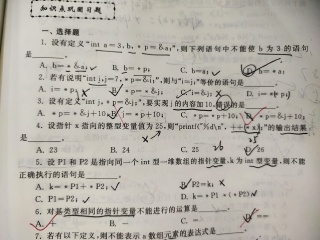 知识点巩固习题
一、选择题
1. 没有定义"int a=3,b,*p=&a;",则下列语句中不能使 b 为 3 的语句
是
A. b=*&a; B. b=*p; C. b=a; D. b=a;
2. 若有说明"int i,j=7,*p=&i;",则与"i=j;"等价的语句是
A. i=*p; B. *p=*&j; C. i=&j; D. i=**p;
3. 没有定义"int j,*p=&j;",要实现 j 的内容加 10,错误的是
A. *p=*p+10; D. *p=&j+10;
4. 设指针 x 指向的整型变量值为 25,则"printf("%d\n",++*x);"的输出结果
是
A. 23 B. 24 C. 25 D. 26
5. 设 P1 和 P2 是指向同一个 int 型一维数组的指针变量,k 为 int 型变量,则不能
正确执行的语句是
A. k=*P1+*P2; B. P2=k;
C. P1=P2; D. k=*P1*(*P2)
6. 对基类型相同的指针变量不能进行的运算是
A. + B. - C. =
7. 若有以下定义,则不能表示 a 数组元素的表达式是